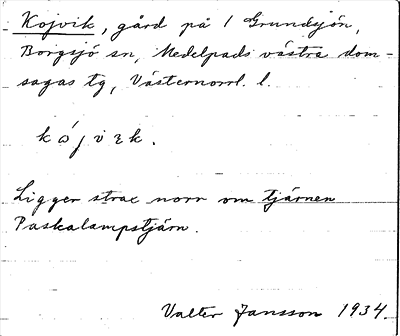 Kojvik, gård på 1 Grundsjön,
Borgsjö sn, Medelpads västra dom-
sagas tg, Västernorrl. l.
kójvɛk.
Ligger strax norr om tjärnen
Paskalampstjärn.
Valter Jansson 1934.